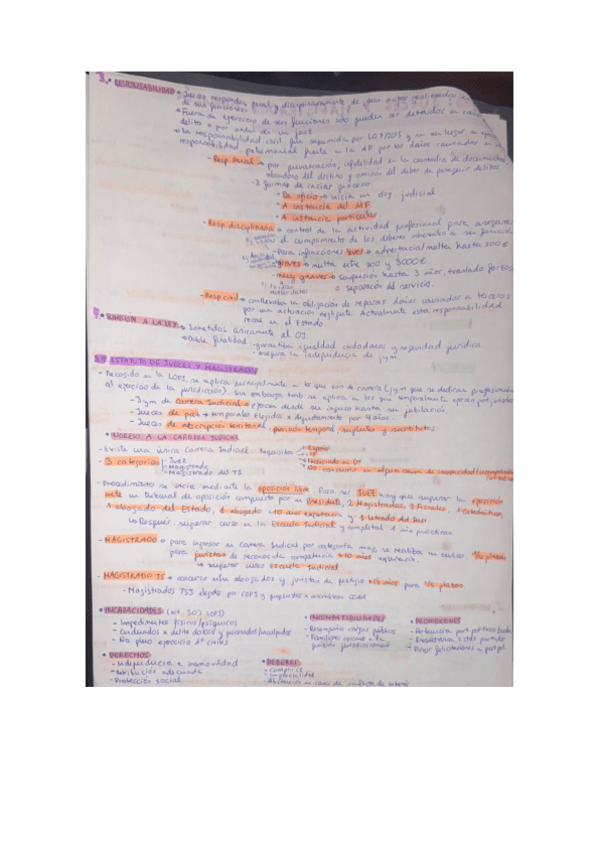 3. • RESPONSABILIDAD • Jueces responden penal y disciplinariamente de sus actos realizados en
de sus funciones
• Fuera de ejercicio de sus funciones solo pueden ser detenidos en caso
delito o por orden de un juez
• La responsabilidad civil fue suprimida por LO7/2015 y en su lugar se
responsabilidad patrimonial frente a la AP por los daños causados en
- Resp penal → por prevaricación, infidelidad en la custodia de documentos,
abandono del destino y omisión del deber de perseguir delitos
- 3 formas de iniciar proceso
- De oficio → inicia un órg. judicial
- A instancia del MF
- A instancia particular
- Resp disciplinaria → control de la actividad profesional para asegurarse
el cumplimiento de los deberes inherentes a su función
- Para infracciones leves → advertencia/multa hasta 500€
- graves → multa entre 500 y 3000€
- muy graves → suspensión hasta 3 años, traslado forzoso
o separación de servicio.
- Resp civil → conllevaba la obligación de reparar daños causados a terceros
por una actuación negligente. Actualmente esta responsabilidad
recae en el Estado.
SUMISIÓN A LA LEY → Sometidos únicamente al OJ.
• Doble finalidad - garantiza igualdad ciudadanos y seguridad jurídica
- asegura la independencia de jym.
ESTATUTO DE JUECES Y MAGISTRADOS
- Recogido en la LOPJ, se aplica principalmente a los que son de carrera (jym que se dedican profesionalmente
al ejercicio de la jurisdicción). Sin embargo tmb se aplica a los que temporalmente ejercen
- Jym de carrera Judicial → ejercen desde su ingreso hasta su jubilación
- Jueces de paz → temporales elegidos x Ayuntamiento por 4 años.
- Jueces de adscripción territorial, periodo temporal, suplentes y sustitutos
• INGRESO A LA CARRERA JUDICIAL
- Existe una única Carrera Judicial. Requisitos
- Español
- +18
- Licenciado en Dº
- No concurrir en alguna causa de incapacidad/incompatibilidad
- 3 categorías
- Juez
- Magistrado
- Magistrado del TS
- Procedimiento se inicia mediante la oposición libre. Para ser JUEZ hay que superar la oposición
ante un tribunal de oposición compuesto por un Presidente, 2 Magistrados, 2 Fiscales, 1 catedrático,
1 abogado del Estado, 1 abogado +10 años experiencia y 1 Letrado Ad. Just
↳ Después: superar curso en la Escuela Judicial y completar 1 año prácticas
- MAGISTRADO → para ingresar en Carrera Judicial por categoría mag. se realiza un concurso
para juristas de reconocida competencia +10 años experiencia.
→ superar curso Escuela Judicial
- MAGISTRADO TS → concurso entre abogados y juristas de prestigio +15 años para 1/5 plazas
- Magistrados TSJ elegidos por CGPJ y propuestos x miembros CCAA
• INCAPACIDADES (art. 303 LOPJ)
- Impedimentos físicos/psíquicos
- Condenados x delito doloso y procesados/inculpados
- No pleno ejercicio dº civiles
• INCOMPATIBILIDADES
- Desempeño cargos públicos
- función jurisdiccional
• PROHIBICIONES
- Pertenencia part políticos/sindic.
- Dirigir felicitaciones a pod. pol.
• DERECHOS
- Independencia e inamovilidad
- Retribución adecuada
- Protección social
• DEBERES
- cumplir
- Imparcialidad
- Abstención en casos de conflicto de interés